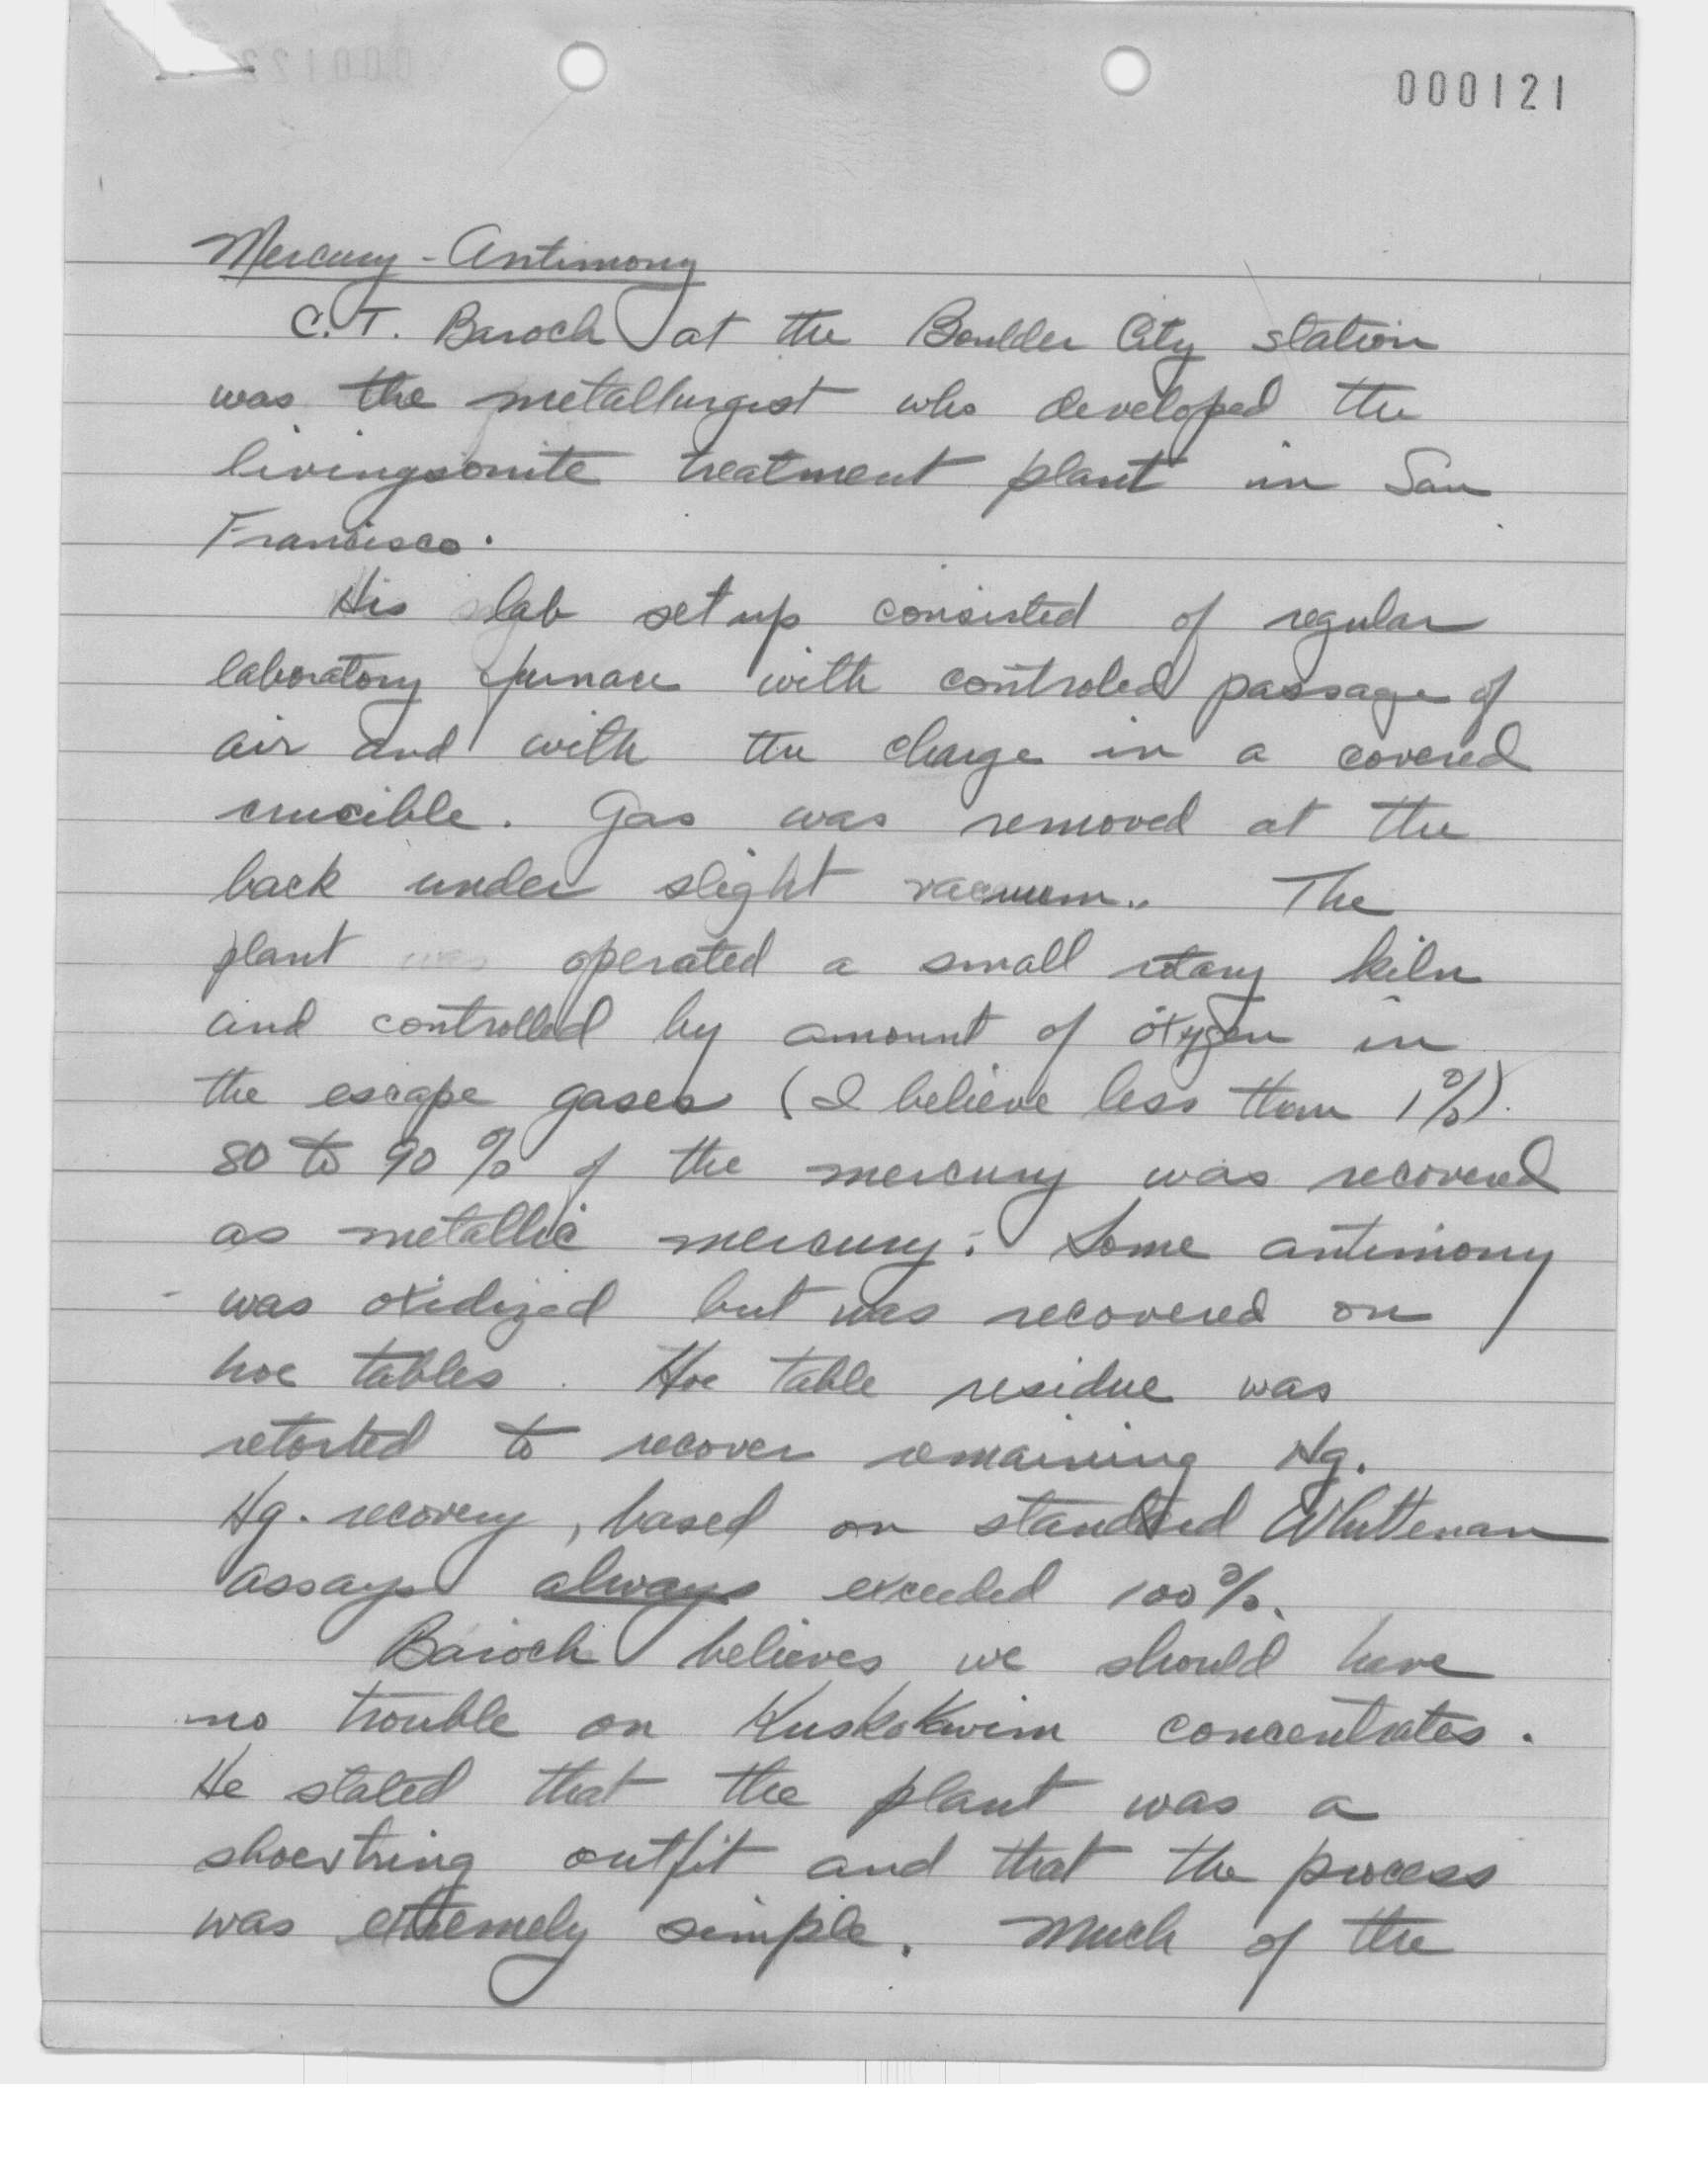 000121
Mercury - Antimony
C. T. Baroch at the Boulder City station
was the metallurgist who developed the
livingsonite treatment plant in San
Francisco.
His lab set up consisted of regular
laboratory furnace with controled passage of
air and with the charge in a covered
crucible. Gas was removed at the
back under slight vacuum. The
plant operated a small rotary kiln
and controlled by amount of oxygen in
the escape gases (I believe less than 1%).
80 to 90% of the mercury was recovered
as metallic mercury. Some antimony
was oxidized but was recovered on
hoe tables. Hoe table residue was
retorted to recover remaining Hg.
Hg. recovery, based on standard Whitteman
assays always exceeded 100%.
Baroch believes we should have
no trouble on Kuskokwim concentrates.
He stated that the plant was a
shoestring outfit and that the process
was extremely simple. Much of the